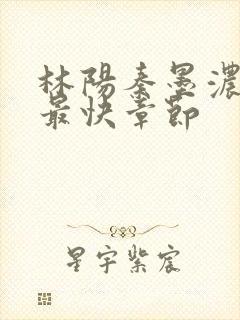 林陽秦墨濃
最快章節
星宇紫宸